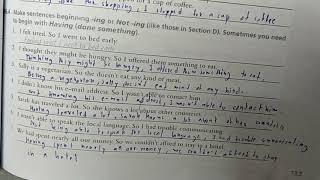 for a cup of coffee.
shopping I stopped for a cup of coffee
Make sentences beginning -ing or Not -ing (like those in Section D). Sometimes you need
to begin with Having (done something).
I felt tired. So I went to bed early.
I thought they might be hungry. So I offered them something to eat.
Thinking they might be hungry, I offered them something to eat.
Sally is a vegetarian. So she doesn't eat any kind of meat.
Being a vegetarian, Sally doesn't eat any kind of meat.
I didn't know his e-mail address. So I wasn't able to contact him.
his e-mail address, I wasn't able to contact him
Sarah has travelled a lot. So she knows a lot about other countries.
Having travelled a lot, Sarah knows a lot about other countries
I wasn't able to speak the local language. So I had trouble communicating.
Not being able to speak the local language, I had trouble communicating
We had spent nearly all our money. So we couldn't afford to stay in a hotel.
Having spent nearly all our money, we couldn't afford to stay
in a hotel